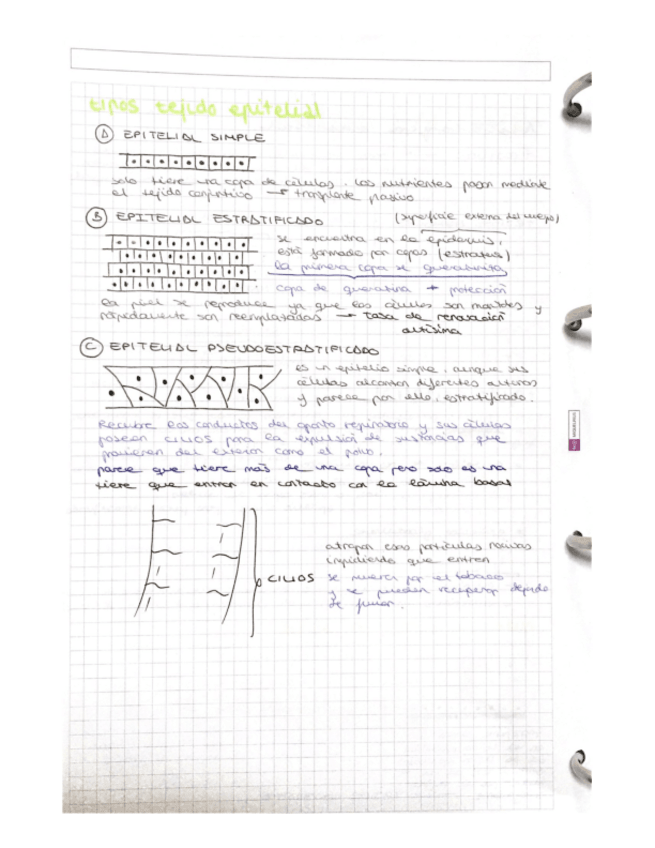 tipos tejido epitelial
A EPITELIAL SIMPLE
solo tiene una capa de células. Los nutrientes pasan mediante
el tejido conjuntivo → transporte pasivo
B EPITELIAL ESTRATIFICADO (superficie externa del cuerpo)
se encuentra en la epidermis,
está formado por capas (estratos)
la primera capa se queratiniza
capa de queratina → protección
la piel se reproduce ya que las células son mortales y
rápidamente son reemplazadas → tasa de renovación
altísima
C EPITELIAL PSEUDOESTRATIFICADO
es un epitelio simple, aunque sus
células alcanzan diferentes alturas
y parece por ello, estratificado.
Recubre los conductos del aparato respiratorio y sus células
poseen cilios para la expulsión de sustancias que
provienen del exterior como el polvo.
parece que tiene más de una capa pero solo es una
tiene que entrar en contacto con la lámina basal
CILIOS
atrapan esas partículas nocivas
impidiendo que entren
se mueren por el tabaco
y se pueden recuperar dejando
de fumar.